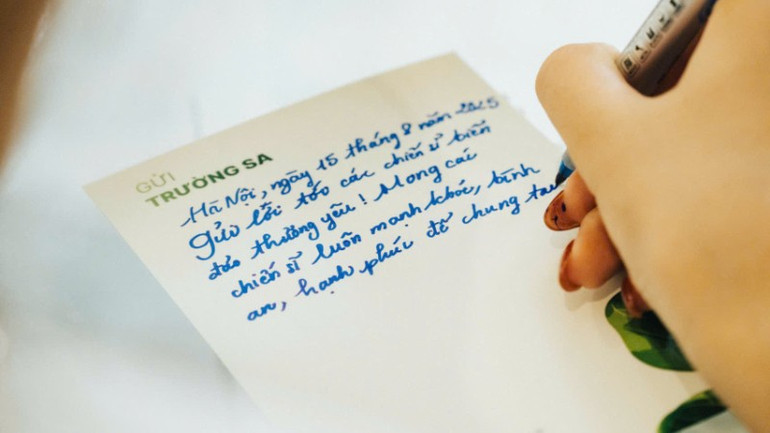 GỬI
TRƯỜNG SA
Hà Nội, ngày 15 tháng 8 năm 2025
Gửi tới các chiến sĩ biển
đảo thương yêu! Mong các
chiến sĩ luôn mạnh khỏe, bình
an, hạnh phúc để chung tay